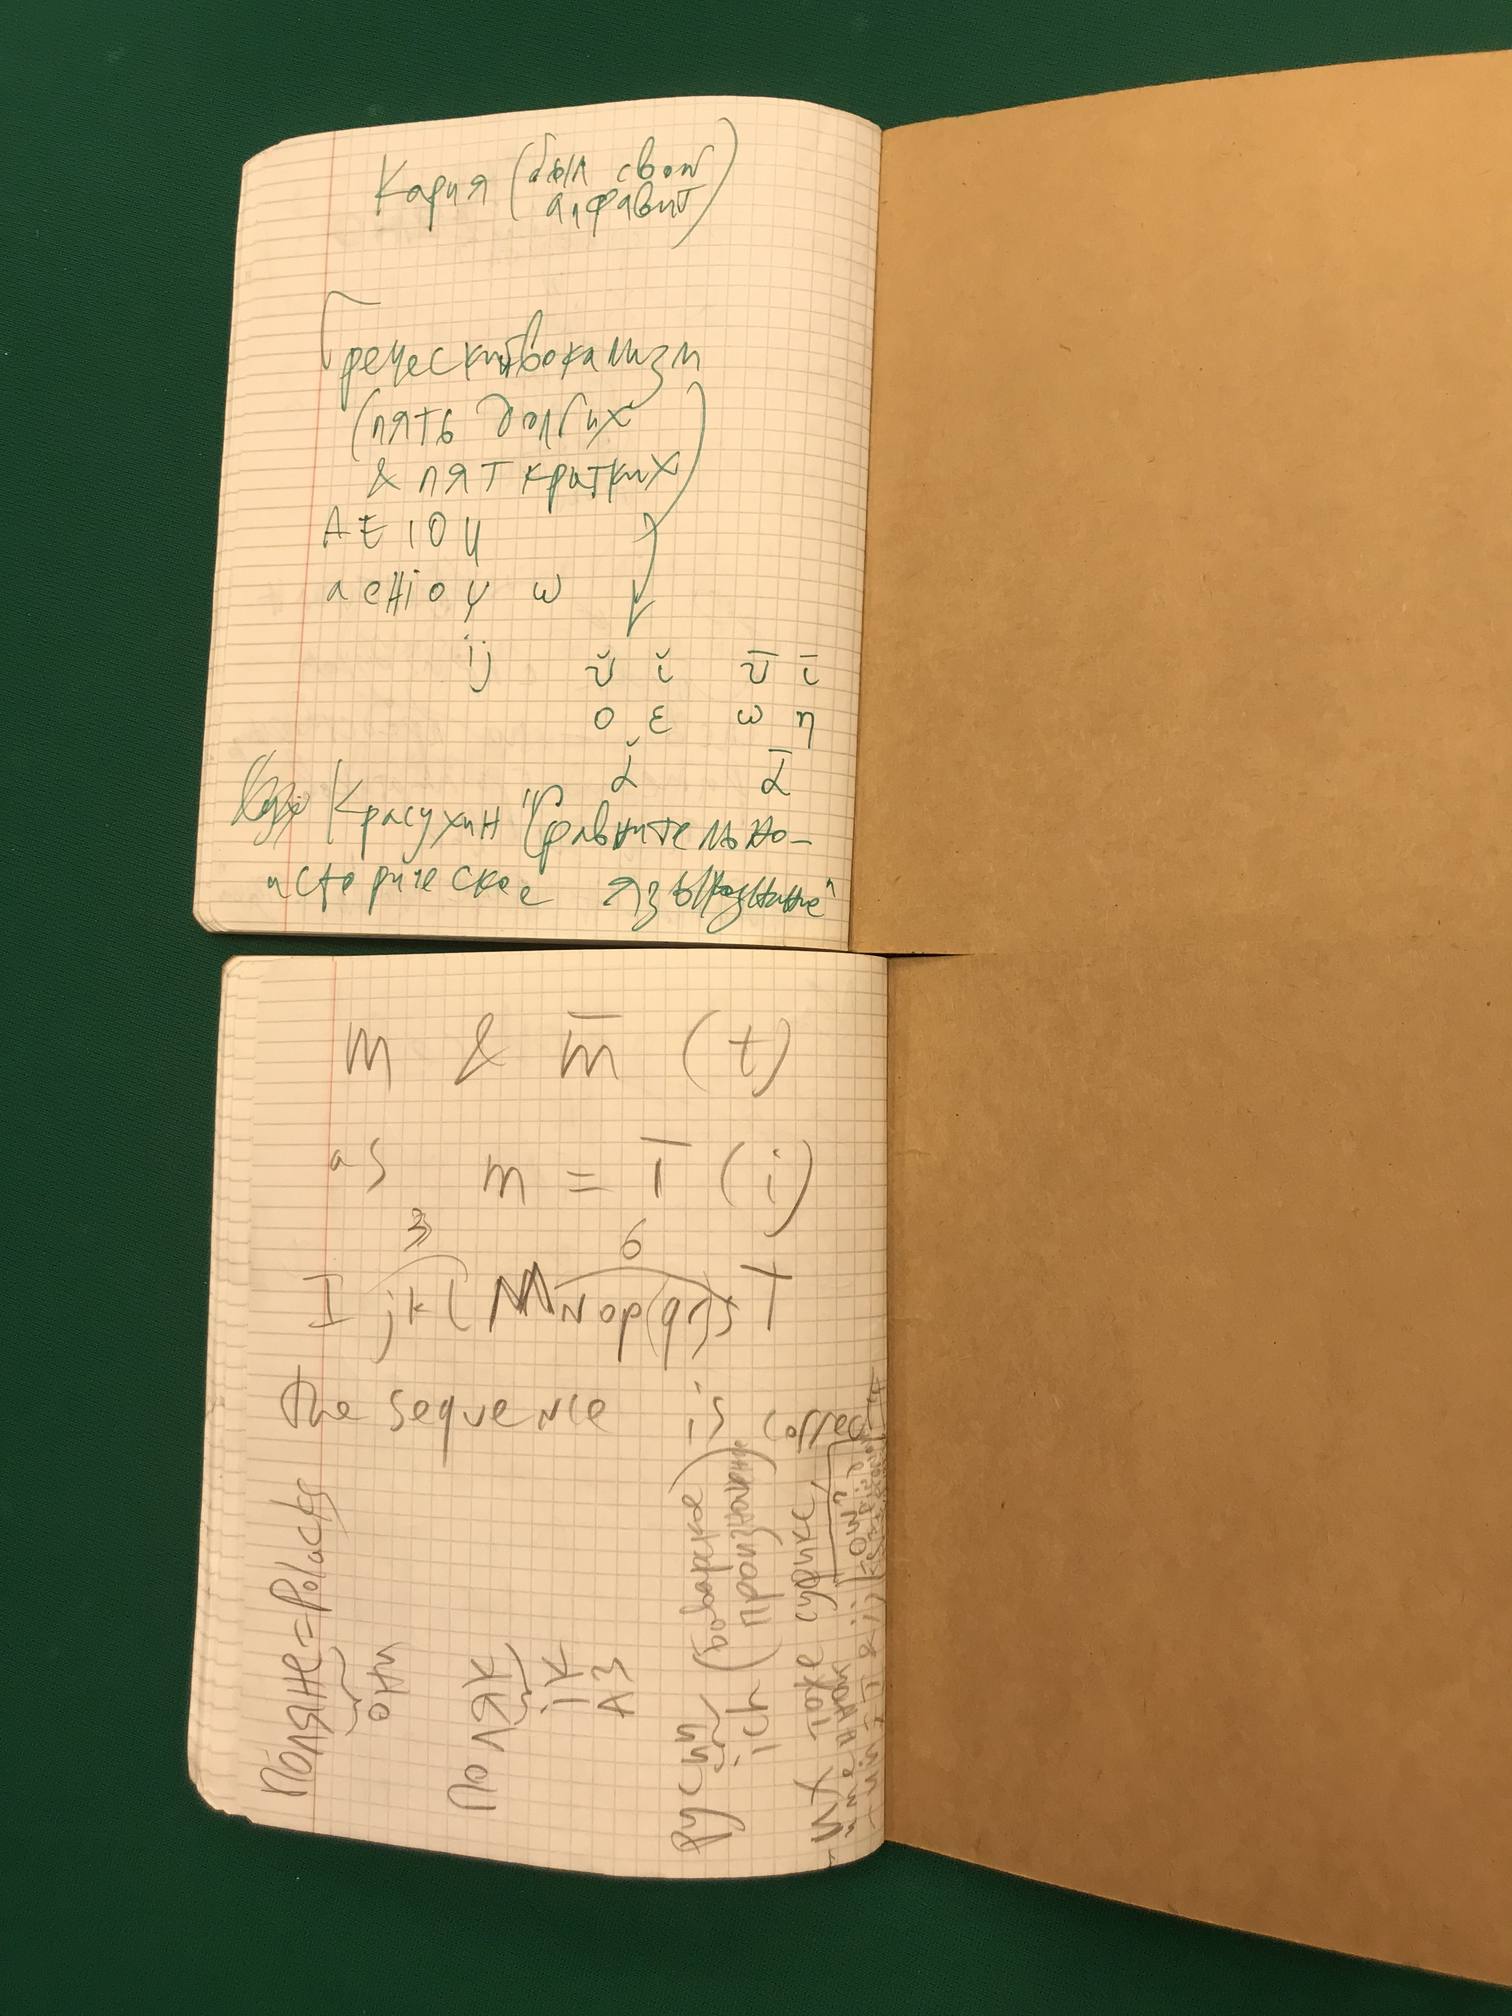 Кария (был свой
алфавит)
Греческий вокализм
(пять долгих
& пят кратких)
A E I O Ч
а е н i о y ω
ij
ῠ ῐ ῡ ῑ
o ε ω η
ᾰ ᾱ
Красухин "Сравнительно-
историческое языкознание"
m & m̅ (t)
as m = T̅ (i)
3 6
I jkl M Nop(qr)s T
the sequence is correct
Поляне = Polacks
они
Поляк
ік
АЗ
Русин (баварское)
ich (произношение
-их тоже суфикс,
именной